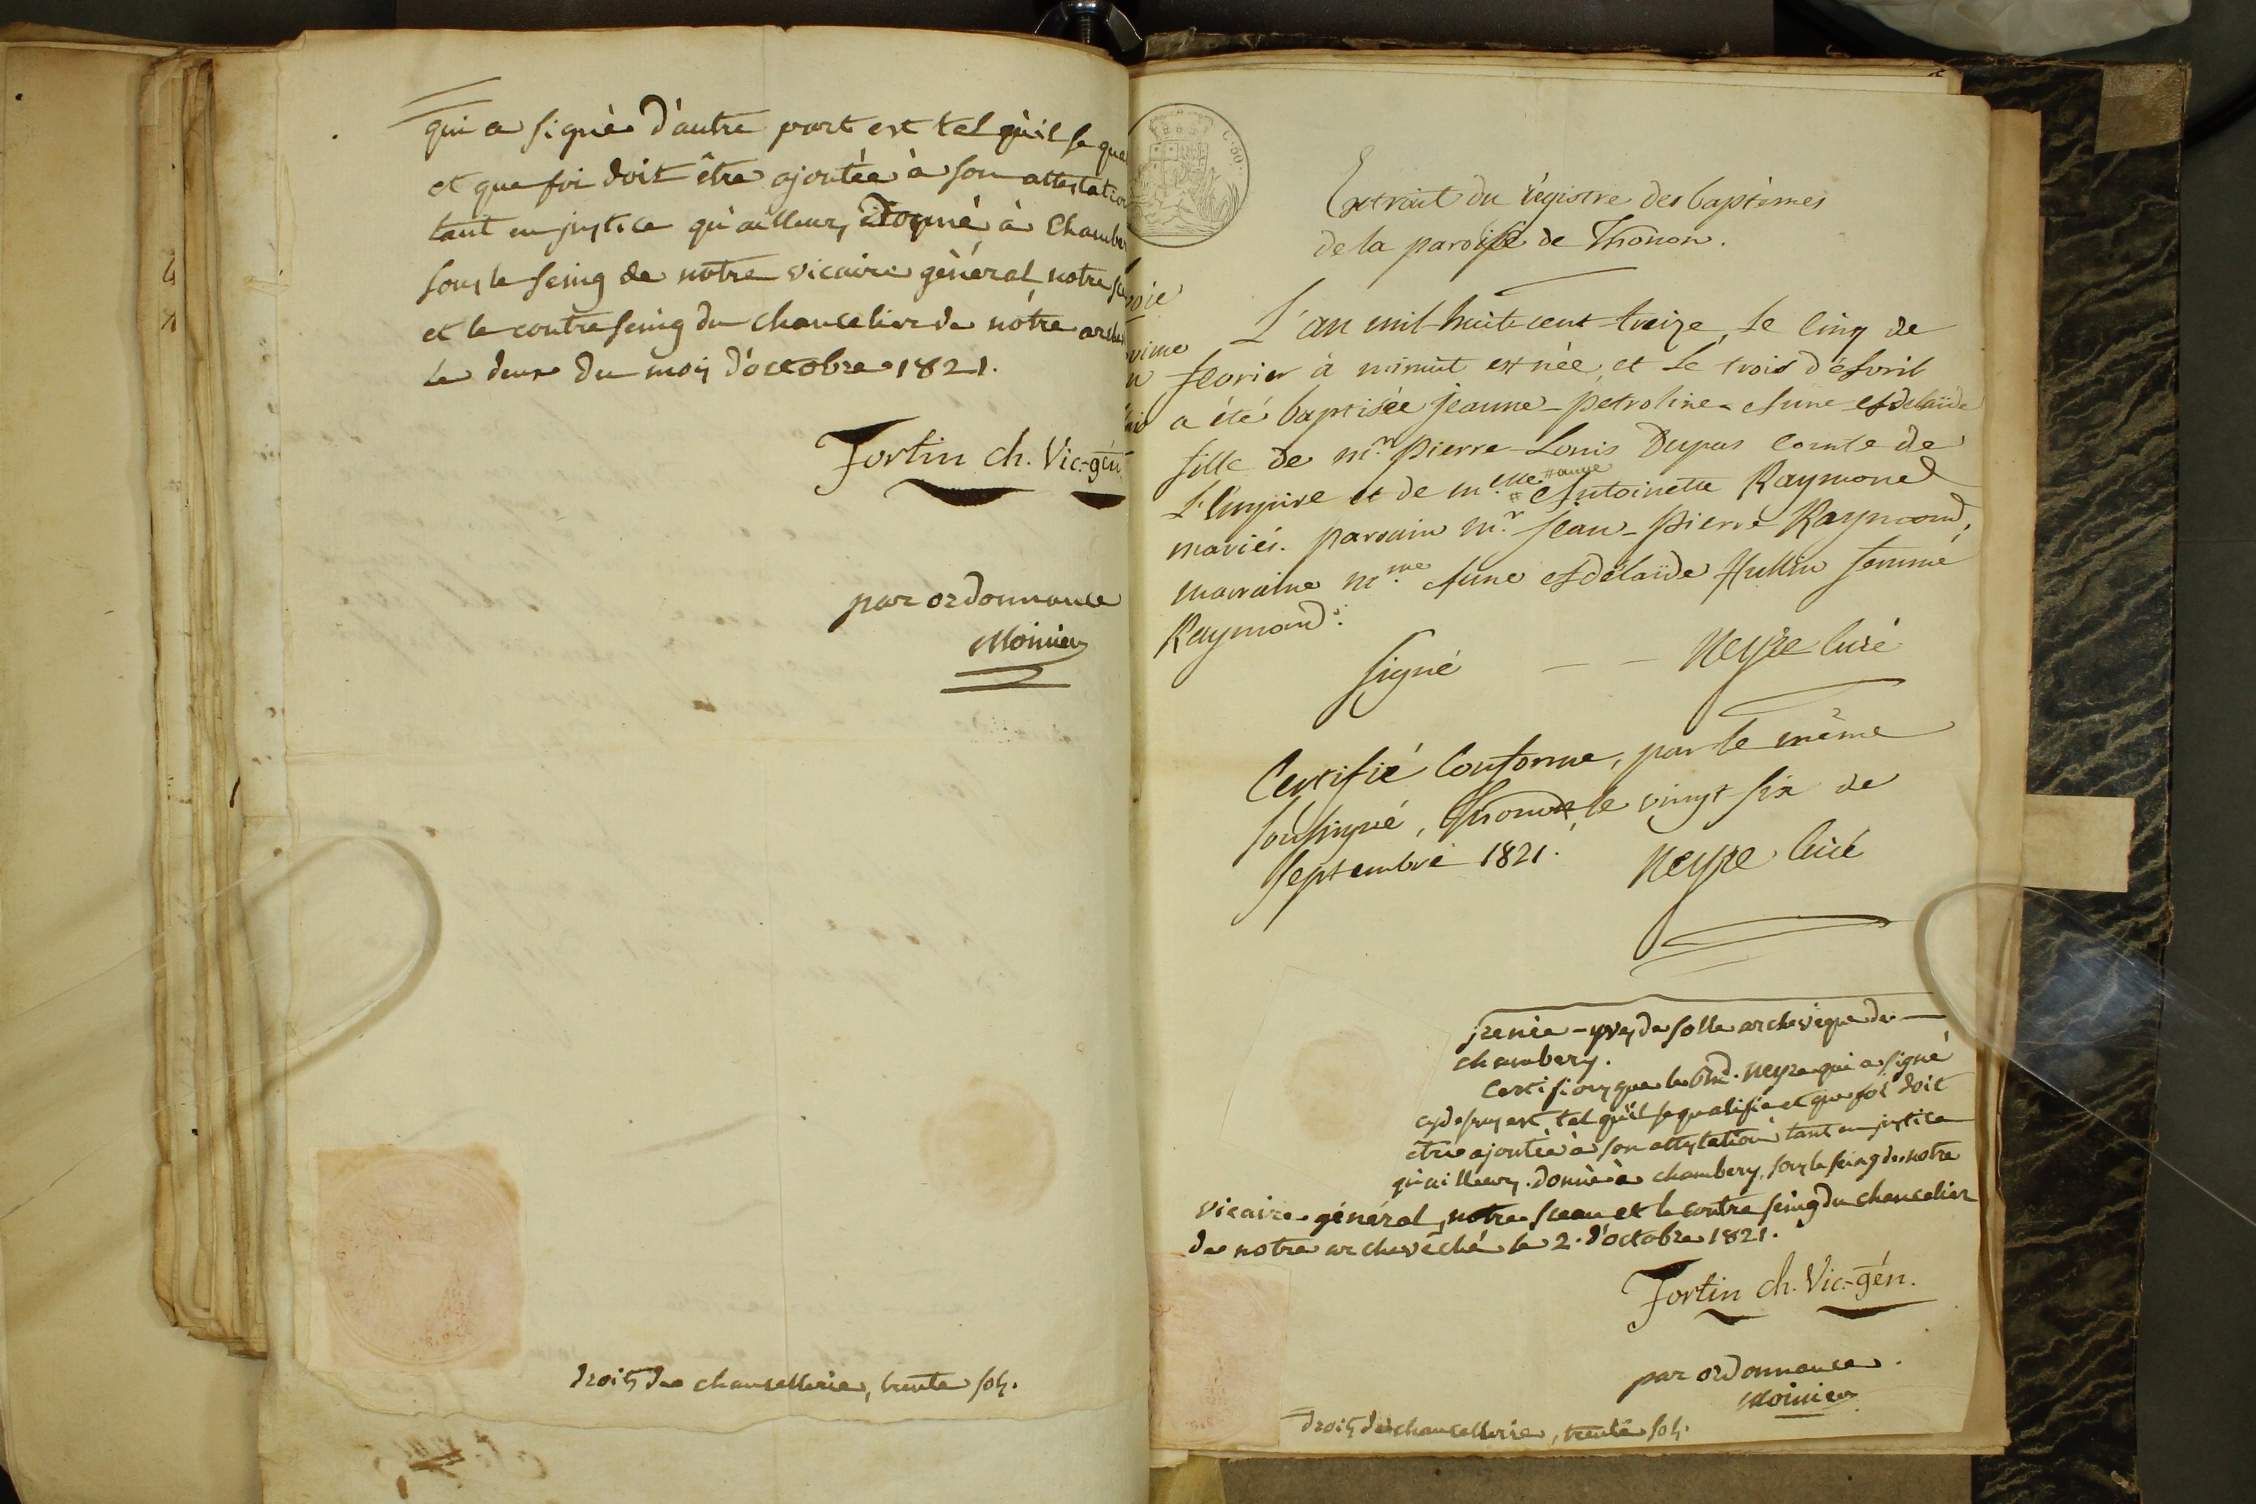 qui a signé d'autre part est tel qu'il se qua
et que foi doit être ajoutée à son attestation
tant en justice qu'ailleurs, donné à Chambe
sous le seing de notre vicaire général, notre sce
et le contreseing du chancelier de notre arche
le deux du mois d'octobre 1821.
Fortin ch. Vic.-gén.
par ordonnance
droits de chancellerie, trente sols.
C. 50.
Extrait du régistre des baptèmes
de la paroisse de Thonon.
L'an mil huit cent treize, le cinq de
fevrier à minuit est née, et le trois d'Avril
a été baptisée jeanne-petroline-Anne-Adelaïde
fille de mr. pierre-Louis Dupas Comte de
L'Empire et de m.elle #anne # Antoinette Raymond
mariés. parrain mr. jean-pierre Raymond,
marraine m.me Anne Adélaïde Hullin femme
Raymond.
signé — — Neyre Curé
Certifié Conforme, par le même
soussigné, Thonon, le vingt-six de
septembre 1821.
Neyre Curé
jrenée-yves de solle archevêque de
chambery.
Certifions que le Rd. Neyre qui a signé
cydessus est tel qu'il se qualifie et que foi doit
être ajoutée à son attestation tant en justice
qu'ailleurs. donné à chambery, sous le seing de notre
vicaire général, notre sceau et le contre seing du chancelier
de notre archevêché le 2. d'octobre 1821.
Fortin ch. Vic.-gén.
par ordonnance.
droits de chancellerie, trente sols.